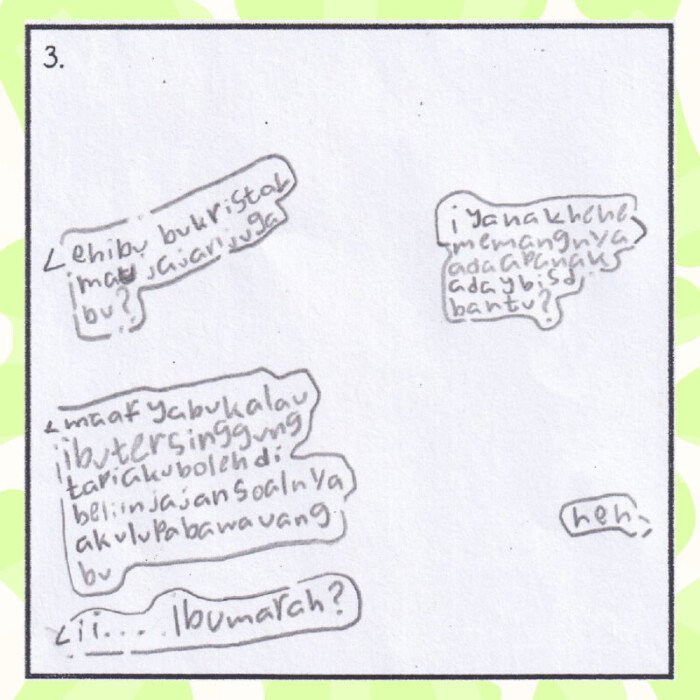 3.
ehibu bukristal
mau jajarijuga
bu?
iyanakhehe
memangnya
adaapanak
adaybisa
bantu?
maaf yabukalau
ibutersinggung
tapiakubolehdi
beliinjajansoalnya
akulupabawauang
bu
heh
ii.... ibumarah?